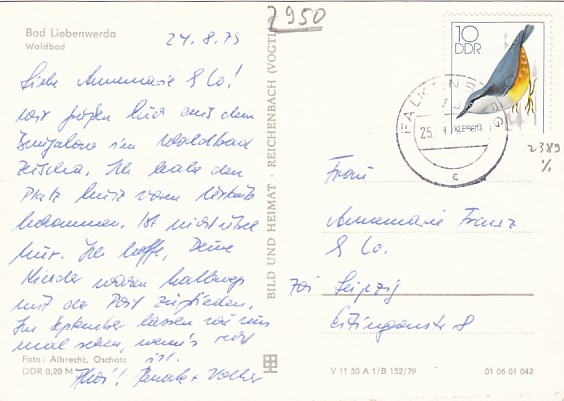 Bad Liebenwerda
Waldbad
24.8.79
2950
Liebe Annemarie & Co!
wir grüßen Euch aus dem
Bungalow im Waldbad
Zeischa. Ich habe den
Platz kurz vorm Urlaub
bekommen. Ist nicht übel
hier. Ich hoffe, Deine
Kinder waren halbwegs
mit der Post zufrieden.
Im September lassen wir uns
mal sehen, wenn's recht
ist.
Foto: Albrecht, Oschatz
DDR 0,20 M
Ahoi! Renate + Volker
BILD UND HEIMAT · REICHENBACH (VOGTL
10
DDR
KLEIBER
FALKENBERG
25.
c
2389
%
Frau
Annemarie Franz
& Co.
701 Leipzig
8
V 11 50 A 1/B 152/79
01 06 01 042